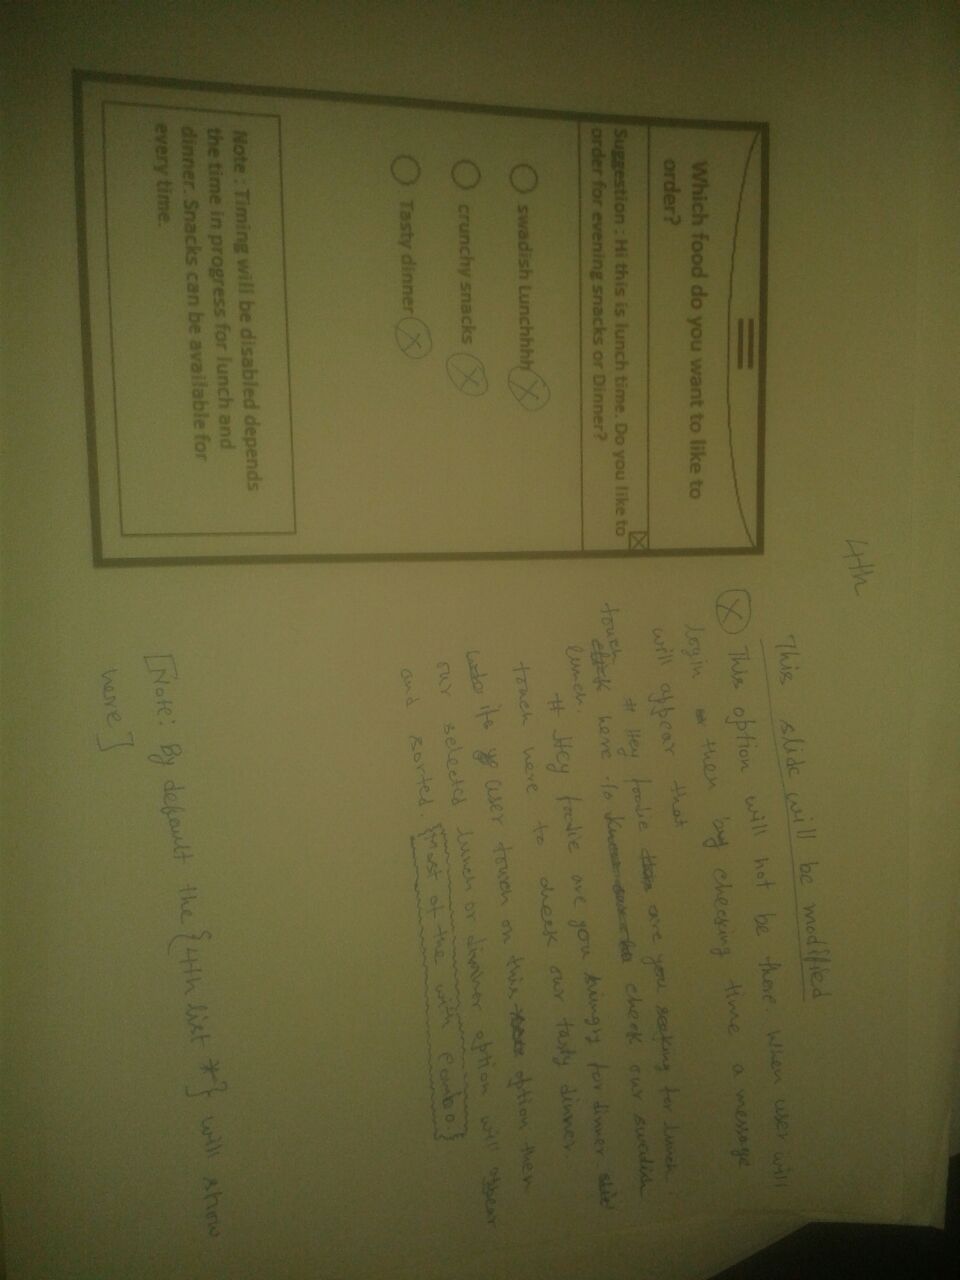 4th
Which food do you want to like to
order?
Suggestion : Hi this is lunch time. Do you like to
order for evening snacks or Dinner?
swadish Lunchhhh X
crunchy snacks X
Tasty dinner X
Note : Timing will be disabled depends
the time in progress for lunch and
dinner. Snacks can be available for
every time.
This slide will be modified
X This option will not be there. When user will
login then by checking time a message
will appear that
# Hey foodie are you seaking for lunch
touch here to check our swadish
lunch.
# Hey foodie are you hungry for dinner
touch here to check our tasty dinner
its user touch on this option then
our selected lunch or dinner option will appear
and sorted. {most of the with combo.}
[Note: By default the {4th list *} will show
here]